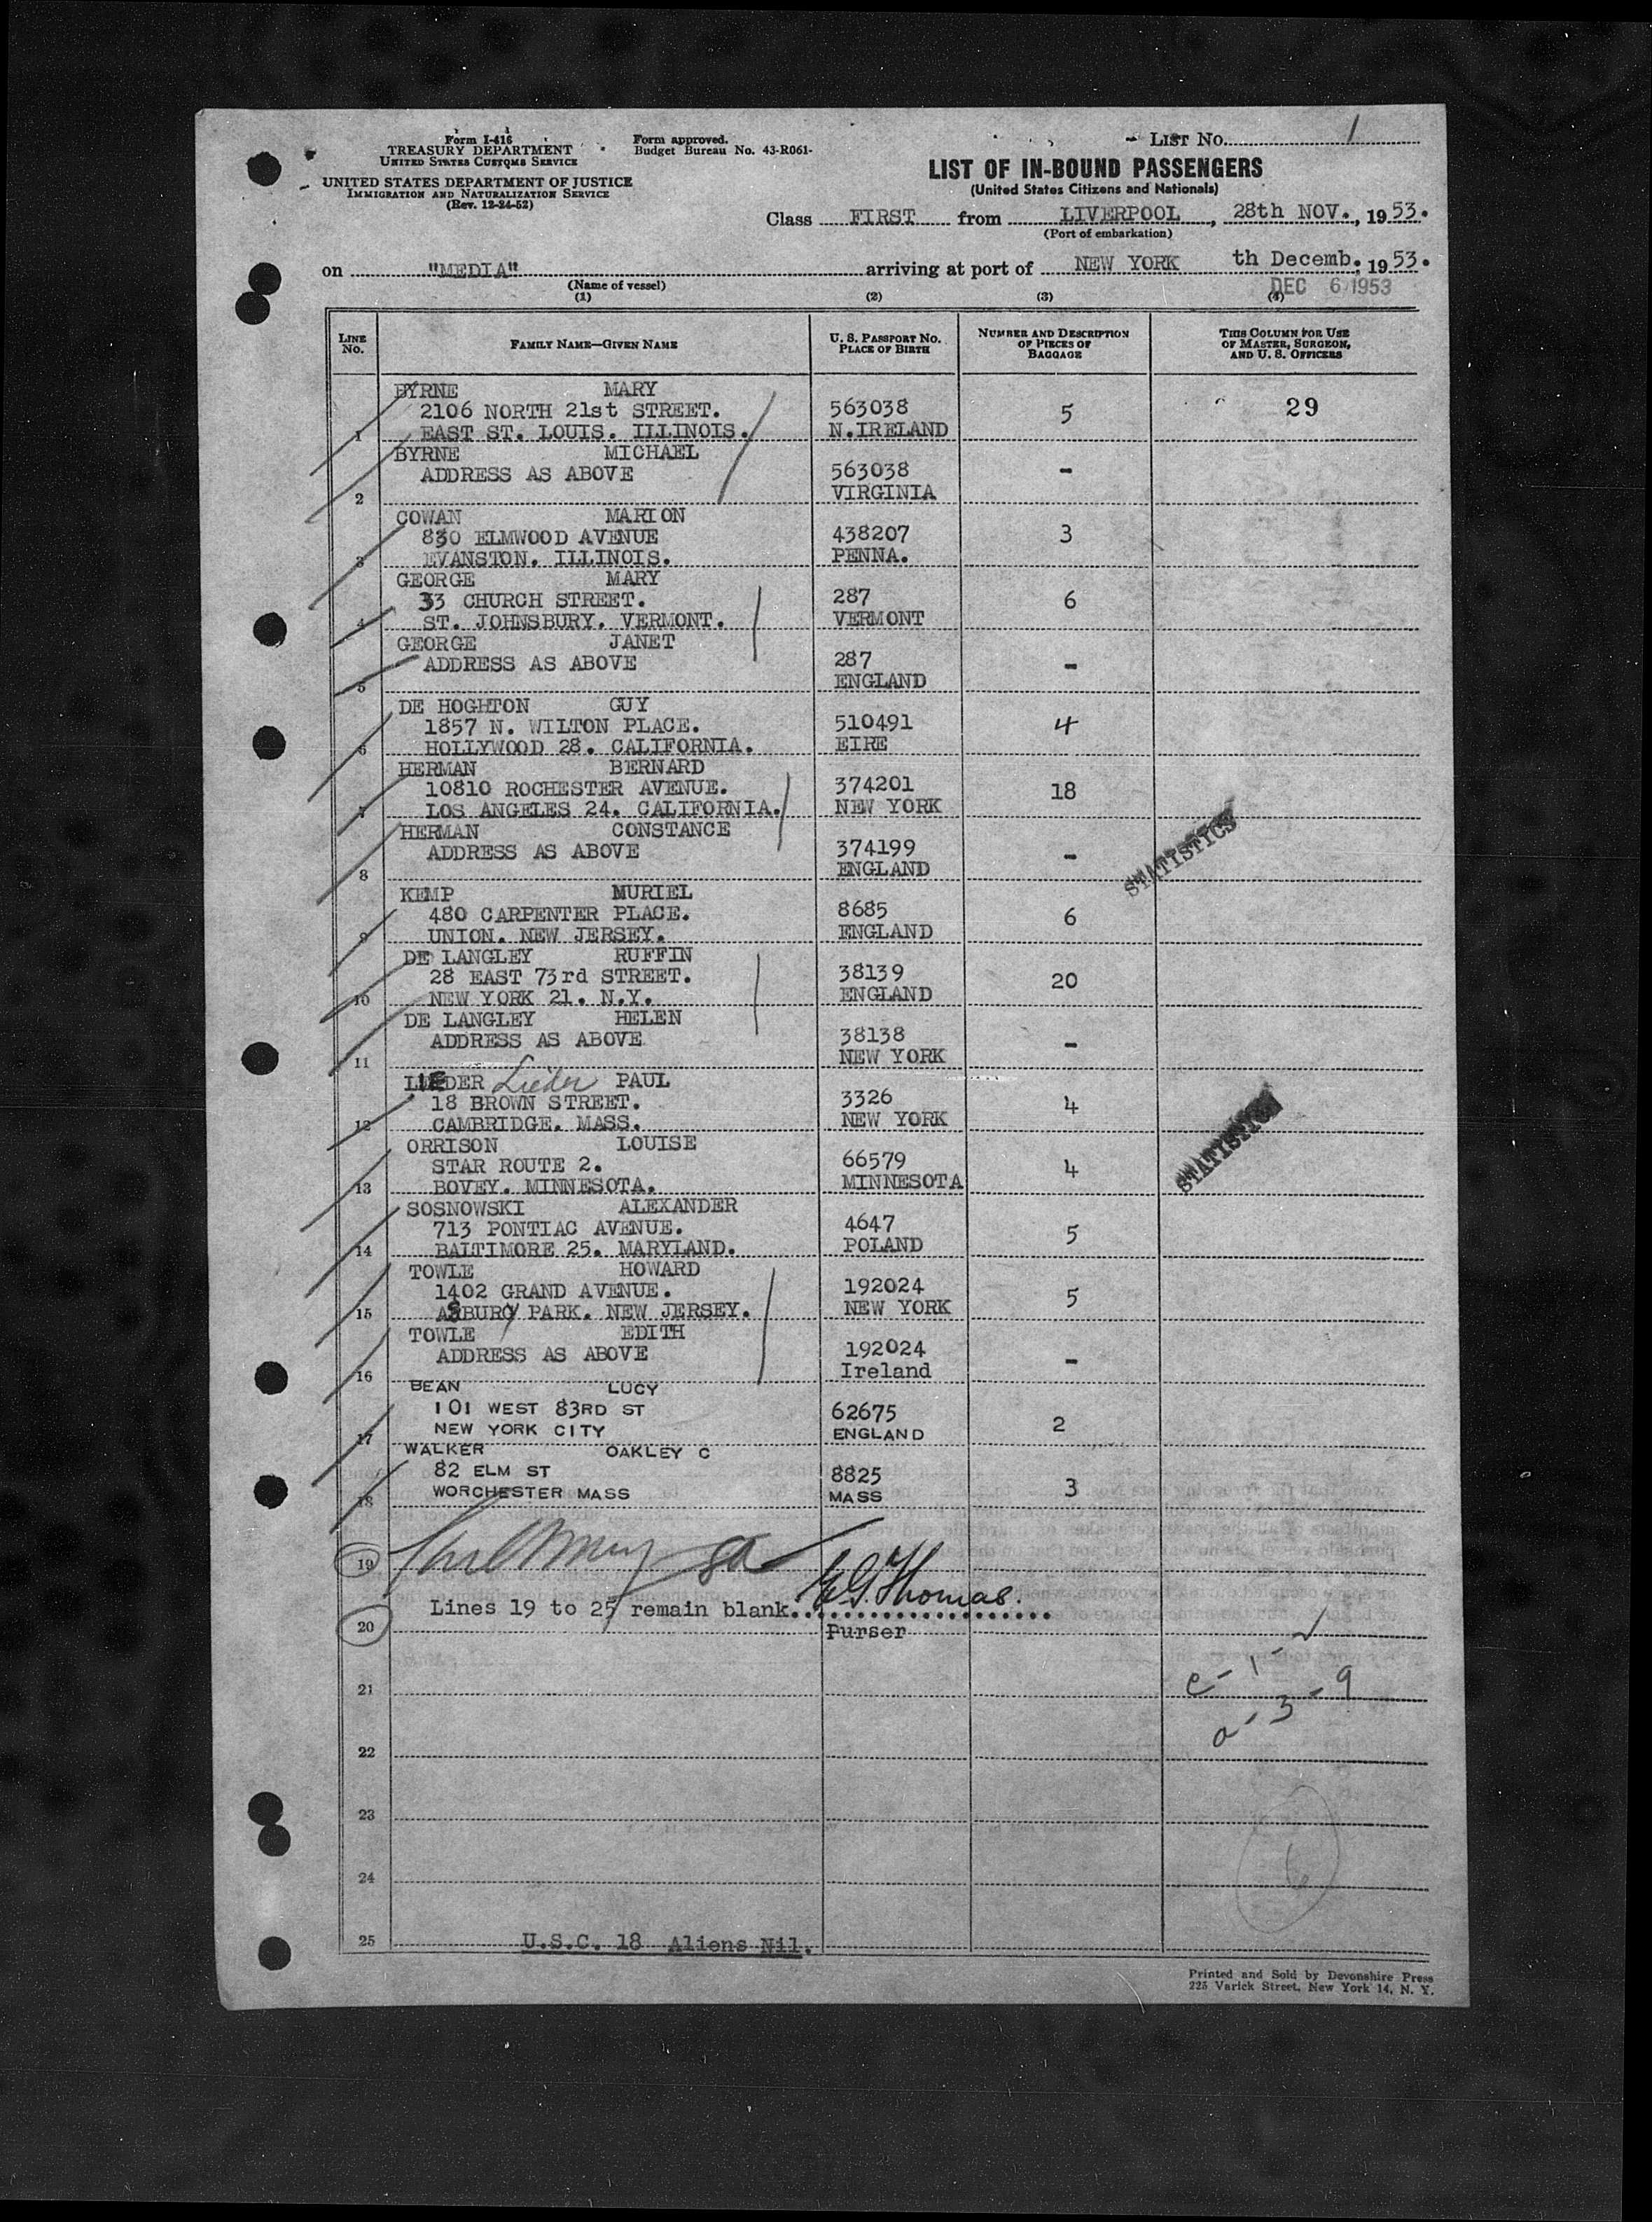 Form I-416
TREASURY DEPARTMENT
UNITED STATES CUSTOMS SERVICE
UNITED STATES DEPARTMENT OF JUSTICE
IMMIGRATION AND NATURALIZATION SERVICE
(Rev. 12-24-52)
Form approved.
Budget Bureau No. 43-R061-
LIST No. 1
LIST OF IN-BOUND PASSENGERS
(United States Citizens and Nationals)
Class FIRST from LIVERPOOL, 28th NOV., 1953.
(Port of embarkation)
on "MEDIA" arriving at port of NEW YORK th Decemb. 1953.
(Name of vessel)
DEC 6 1953
(1) (2) (3) (4)
LINE No. FAMILY NAME—GIVEN NAME U. S. PASSPORT No. PLACE OF BIRTH NUMBER AND DESCRIPTION OF PIECES OF BAGGAGE THIS COLUMN FOR USE OF MASTER, SURGEON, AND U. S. OFFICERS
BYRNE MARY
2106 NORTH 21st STREET. 563038 5 29
1 EAST ST. LOUIS. ILLINOIS. N.IRELAND
BYRNE MICHAEL
ADDRESS AS ABOVE 563038 -
2 VIRGINIA
COWAN MARION
830 ELMWOOD AVENUE 438207 3
3 EVANSTON. ILLINOIS. PENNA.
GEORGE MARY
33 CHURCH STREET. 287 6
4 ST. JOHNSBURY. VERMONT. VERMONT
GEORGE JANET
ADDRESS AS ABOVE 287 -
5 ENGLAND
DE HOGHTON GUY
1857 N. WILTON PLACE. 510491 4
6 HOLLYWOOD 28. CALIFORNIA. EIRE
HERMAN BERNARD
10810 ROCHESTER AVENUE. 374201 18
7 LOS ANGELES 24. CALIFORNIA. NEW YORK
HERMAN CONSTANCE
ADDRESS AS ABOVE 374199 -
8 ENGLAND
STATISTICS
KEMP MURIEL
480 CARPENTER PLACE. 8685 6
9 UNION. NEW JERSEY. ENGLAND
DE LANGLEY RUFFIN
28 EAST 73rd STREET. 38139 20
10 NEW YORK 21. N.Y. ENGLAND
DE LANGLEY HELEN
ADDRESS AS ABOVE 38138 -
11 NEW YORK
LIEDER Lieder PAUL
18 BROWN STREET. 3326 4
12 CAMBRIDGE. MASS. NEW YORK
ORRISON LOUISE
STAR ROUTE 2. 66579 4
13 BOVEY. MINNESOTA. MINNESOTA
STATISTICS
SOSNOWSKI ALEXANDER
713 PONTIAC AVENUE. 4647 5
14 BALTIMORE 25. MARYLAND. POLAND
TOWLE HOWARD
1402 GRAND AVENUE. 192024 5
15 ASBURY PARK. NEW JERSEY. NEW YORK
TOWLE EDITH
ADDRESS AS ABOVE 192024 -
16 Ireland
BEAN LUCY
101 WEST 83RD ST 62675 2
17 NEW YORK CITY ENGLAND
WALKER OAKLEY C
82 ELM ST 8825 3
18 WORCHESTER MASS MASS
19
Lines 19 to 25 remain blank. E.G. Thomas.
20 Purser
21 c-1-✓
a-3-9
22
23
24 6
25 U.S.C. 18 Aliens Nil.
Printed and Sold by Devonshire Press
225 Varick Street, New York 14, N. Y.